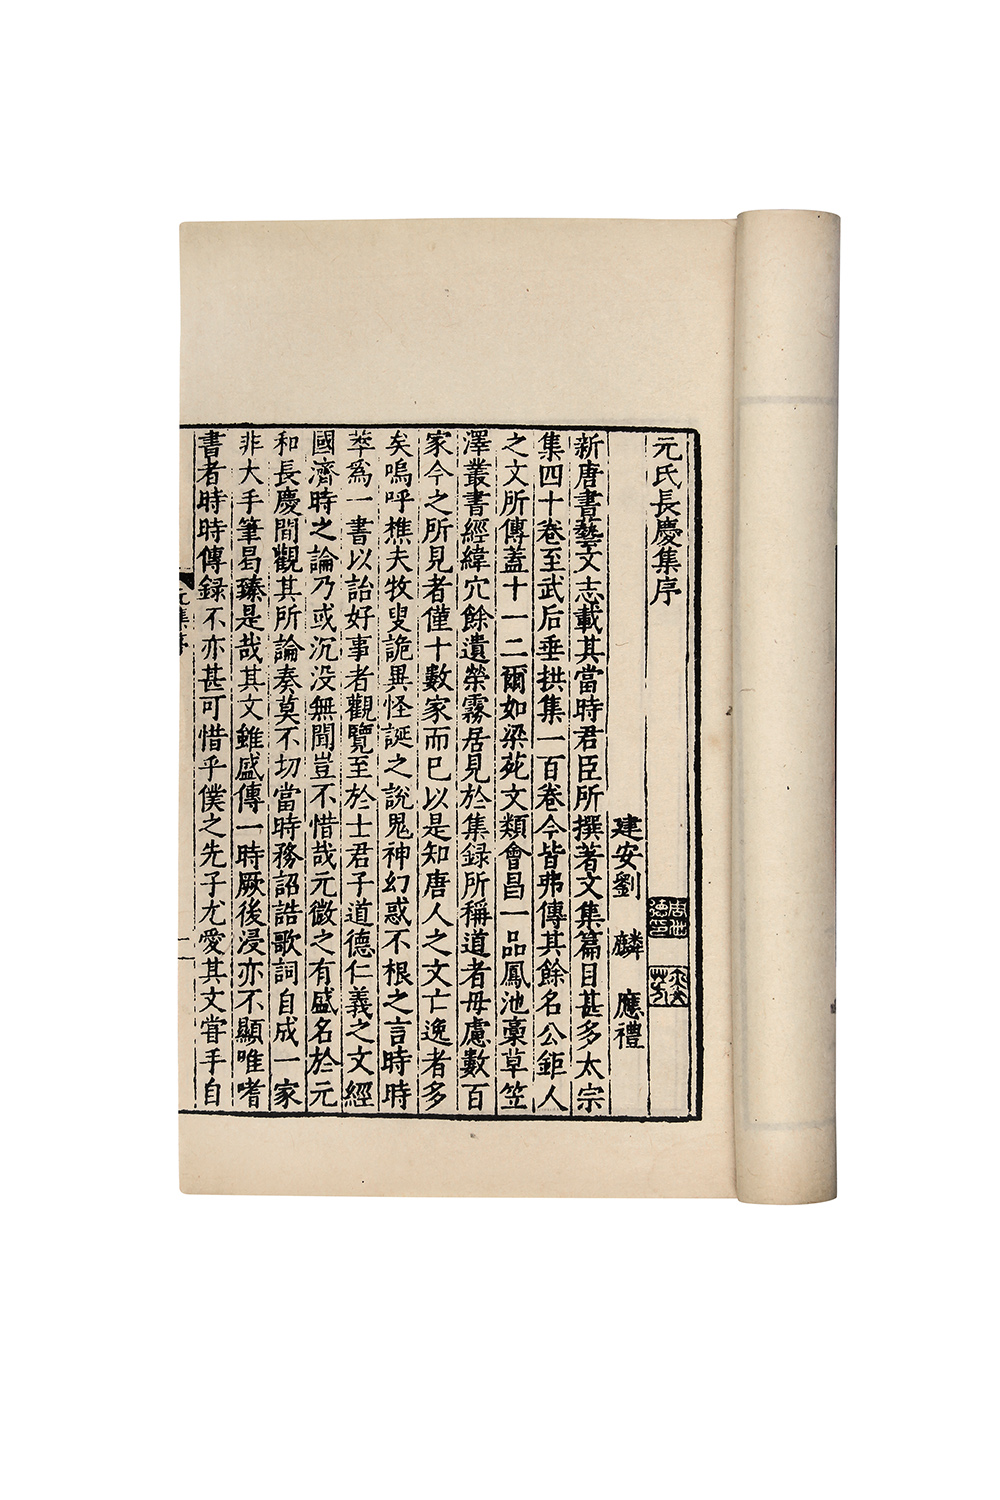 元氏長慶集序
建安劉　麟　應禮
新唐書藝文志載其當時君臣所撰著文集篇目甚多太宗
集四十卷至武后垂拱集一百卷今皆弗傳其餘名公鉅人
之文所傳蓋十一二爾如梁苑文類會昌一品鳳池稾草笠
澤叢書經緯穴餘遺榮霧居見於集録所稱道者毋慮數百
家今之所見者僅十數家而已以是知唐人之文亡逸者多
矣嗚呼樵夫牧叟詭異怪誕之說鬼神幻惑不根之言時時
萃爲一書以詒好事者觀覽至於士君子道德仁義之文經
國濟時之論乃或沉没無聞豈不惜哉元微之有盛名於元
和長慶間觀其所論奏莫不切當時務詔誥歌詞自成一家
非大手筆曷臻是哉其文雖盛傳一時厥後浸亦不顯唯嗜
書者時時傳録不亦甚可惜乎僕之先子尤愛其文嘗手自
元集序
一